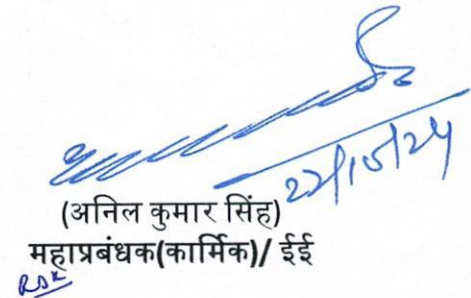 22/10/24
(अनिल कुमार सिंह)
महाप्रबंधक(कार्मिक)/ ईई